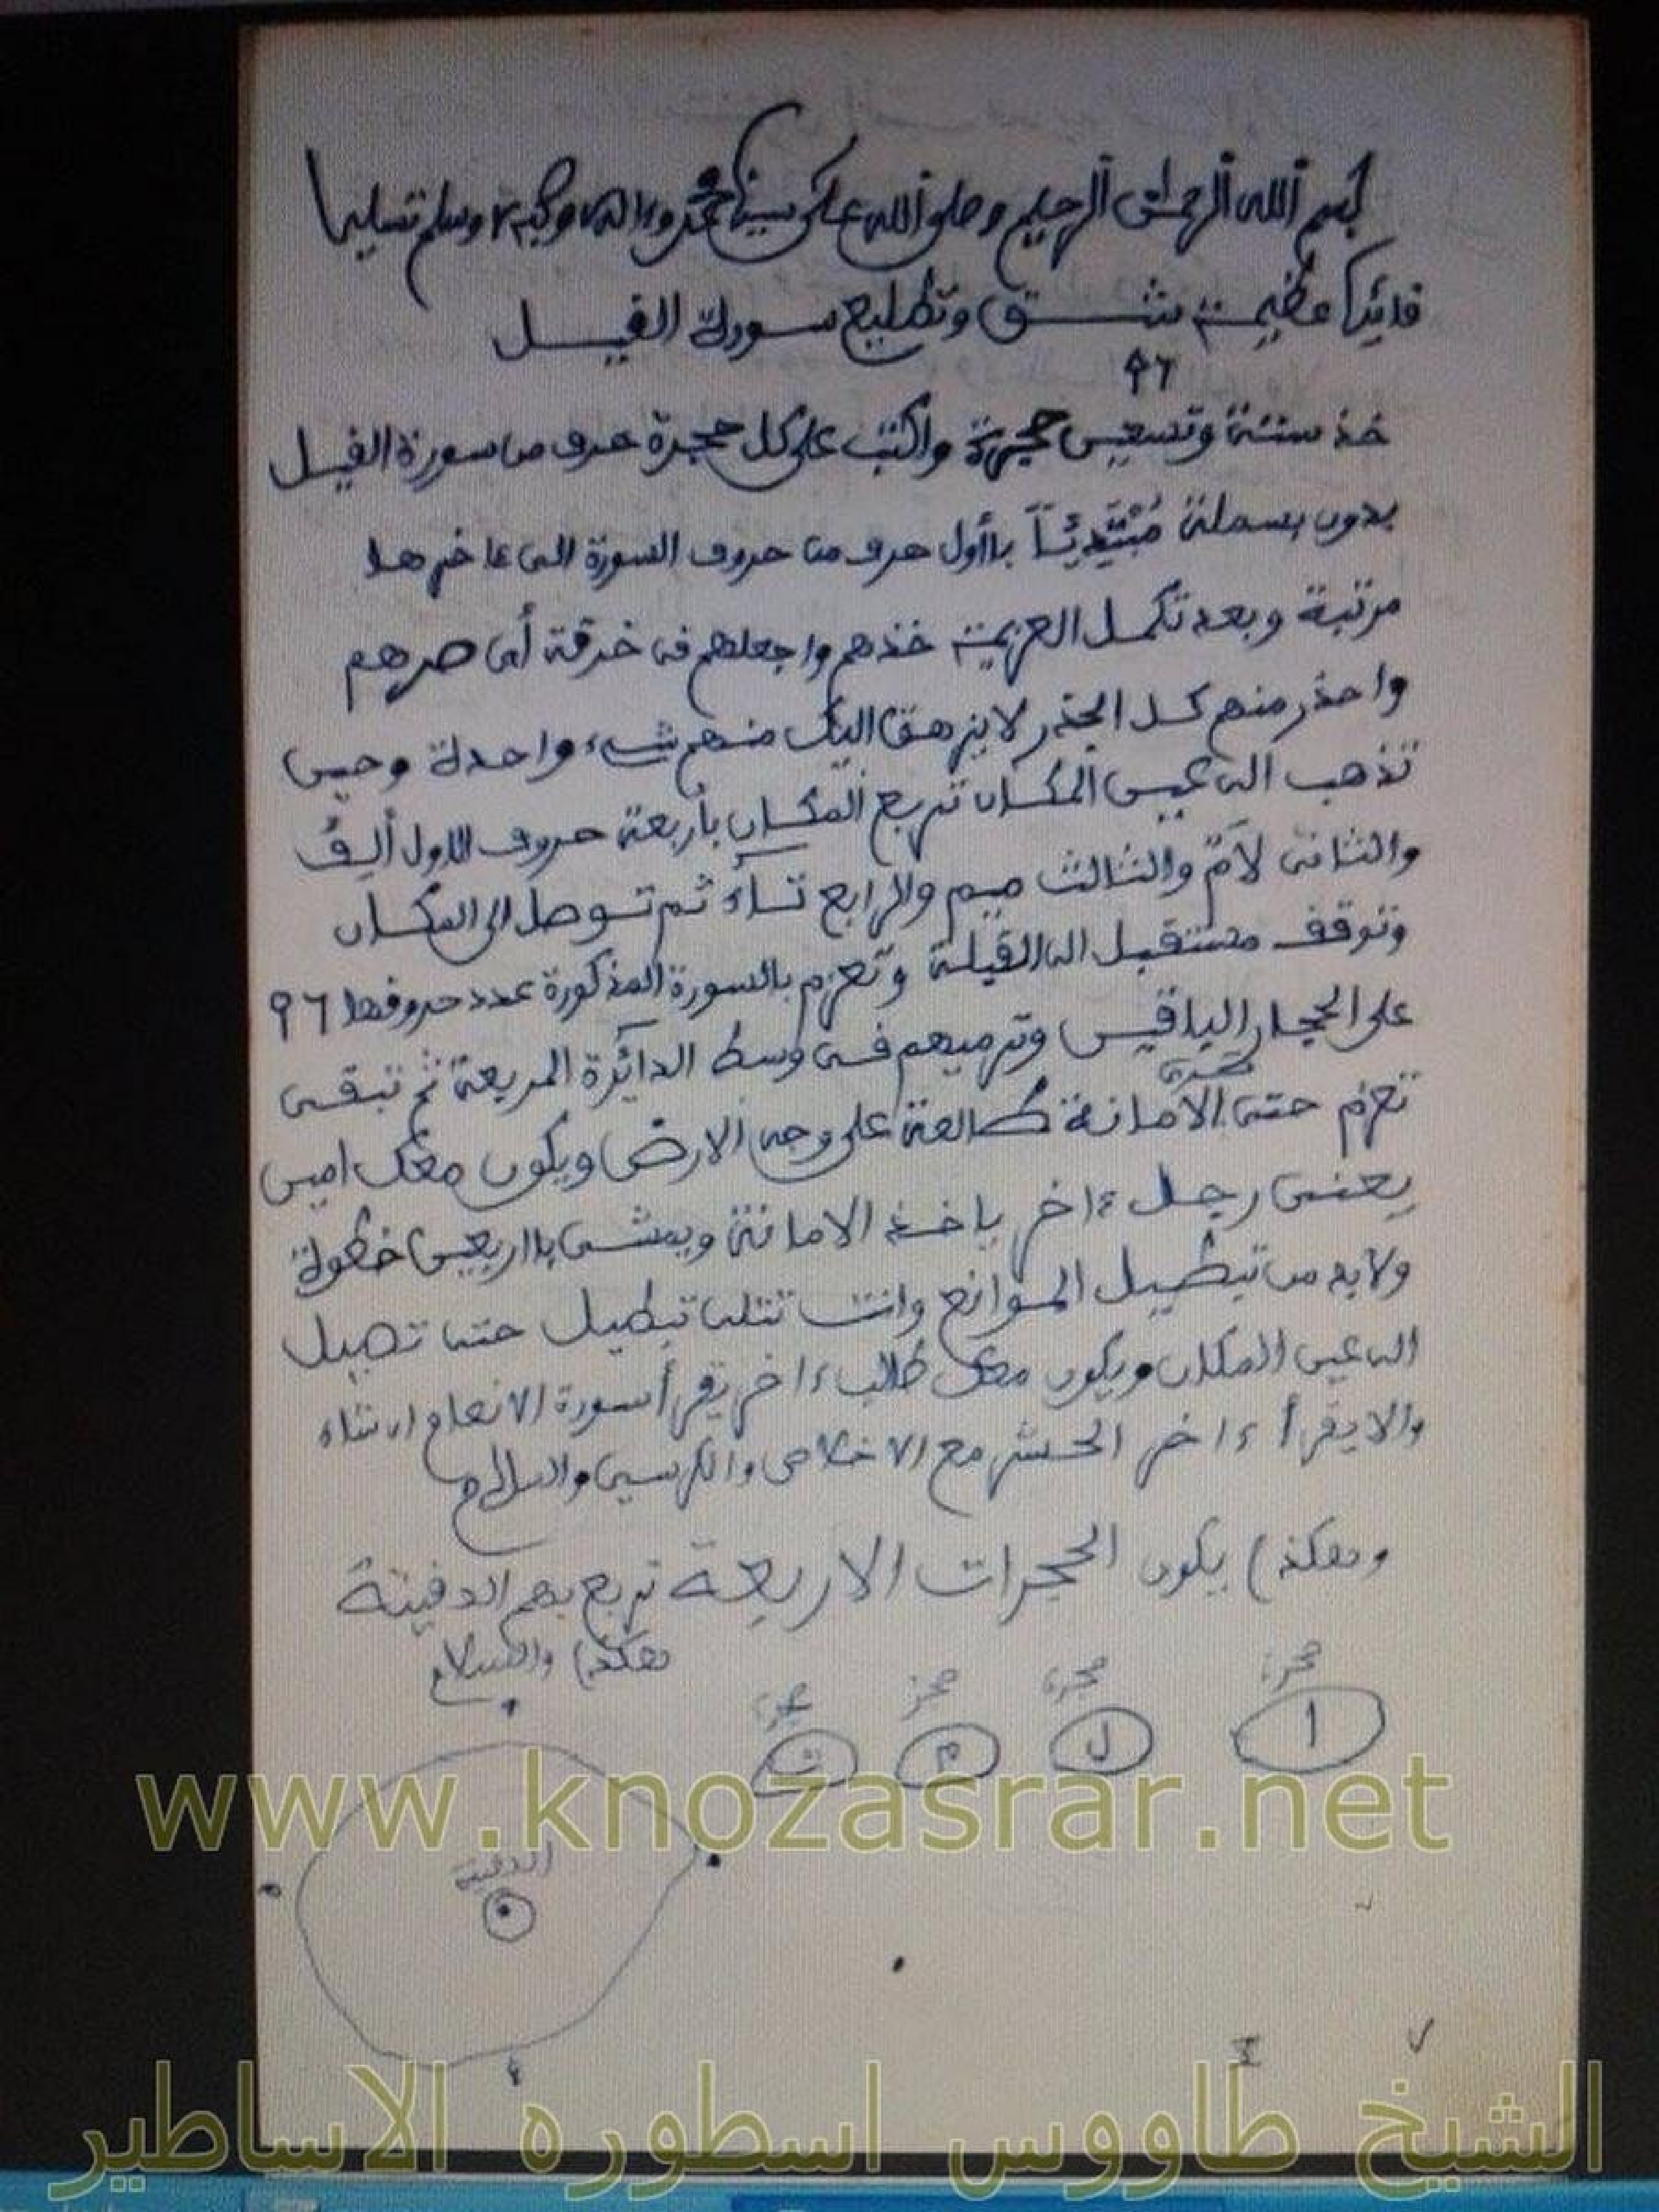 بسم الله الرحمن الرحيم وصلى الله على سيدنا محمد وءاله وصحبه وسلم تسليما
فائدة عظيمة شق وتطليع سورة الفيل
٩٦
خذ ستة وتسعين حجرة واكتب على كل حجرة حرف من سورة الفيل
بدون بسملة مُبْتَدِئاً بأول حرف من حروف السورة الى ءاخرها
مرتبة وبعد تكمل العزيمة خذهم واجعلهم فى خرقة أى صرهم
واحذر منهم كل الحذر لا يزهق اليك منهم شىء واحدة وحين
تذهب الى عين المكان تربع المكان بأربعة حروف الاول ألِفٌ
والثانى لآمٌ والثالث ميم والرابع تآء ثم توصل الى المكان
وتوقف مستقبل الى القبلة وتعزم بالسورة المذكورة عدد حروفها ٩٦
على الحجار الباقيين وترميهم فى وسط الدائرة المربعة ثم تبقى
تعزم حتى ترى الأمانة طالعة على وجه الارض ويكون معك امين
يعنى رجل ءاخر ياخذ الامانة ويمشى بااربعين خطوة
ولابد من تبطيل الموانع وانت تتلى تبطيل حتى تصل
الى عين المكان ويكون معك طالب ءاخر يقرأ سورة الانعام اثناء
والا يقرأ ءاخر الحشر مع الاخلاص والكرسي والسلام
وهكذا يكون الحجرات الاربعة تربع بهم الدفينة
هكذا والسلام
حجرة حجرة حجرة حجرة
ا ل م ت
الدفينة
www.knozasrar.net
الشيخ طاووس اسطوره الاساطير